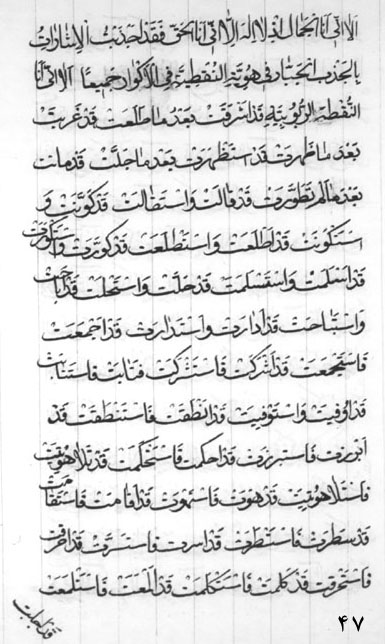 الا انی انا الجمال لذ لا اله الا انی انا الحق فقد لجذبت الاشارات
بالجذب الجبار فی هویة النقطیة فی الاکوار جمیعا الا انی انا
النقطة الربوبیة قد اشرقت بعد ما طلعت قد غربت
بعد ما ظهرت قد ستظهرت بعد ما جلت قد مانت
بعد ما لم تطورت قد قالت واستقالت قد کونت و
استکونت قد اطلعت واستطلعت قد کورت واستکورت
قد اسلمت واستسلمت قد حلت واستحلت قد اباحت
واستباحت قد ادارت واستدارت قد اجمعت
فاستجمعت قد اشرکت فاستشرکت فنابت فاستنابت
قد اوفیت واستوفیت قد انطقت فاستنطقت قد
ابرزت فاستبرزت قد احکمت فاستحکمت قد تلاهوت
فاستلاهوتت قد هوت فاستهوت قد اقامت فاستقامت
قد سطرت فاستطرت قد اسرت فاستسرت قد احرقت
فاستحرقت قد کلمت فاستکلمت قد المعت فاستلمعت
قد اجابت
۴۷